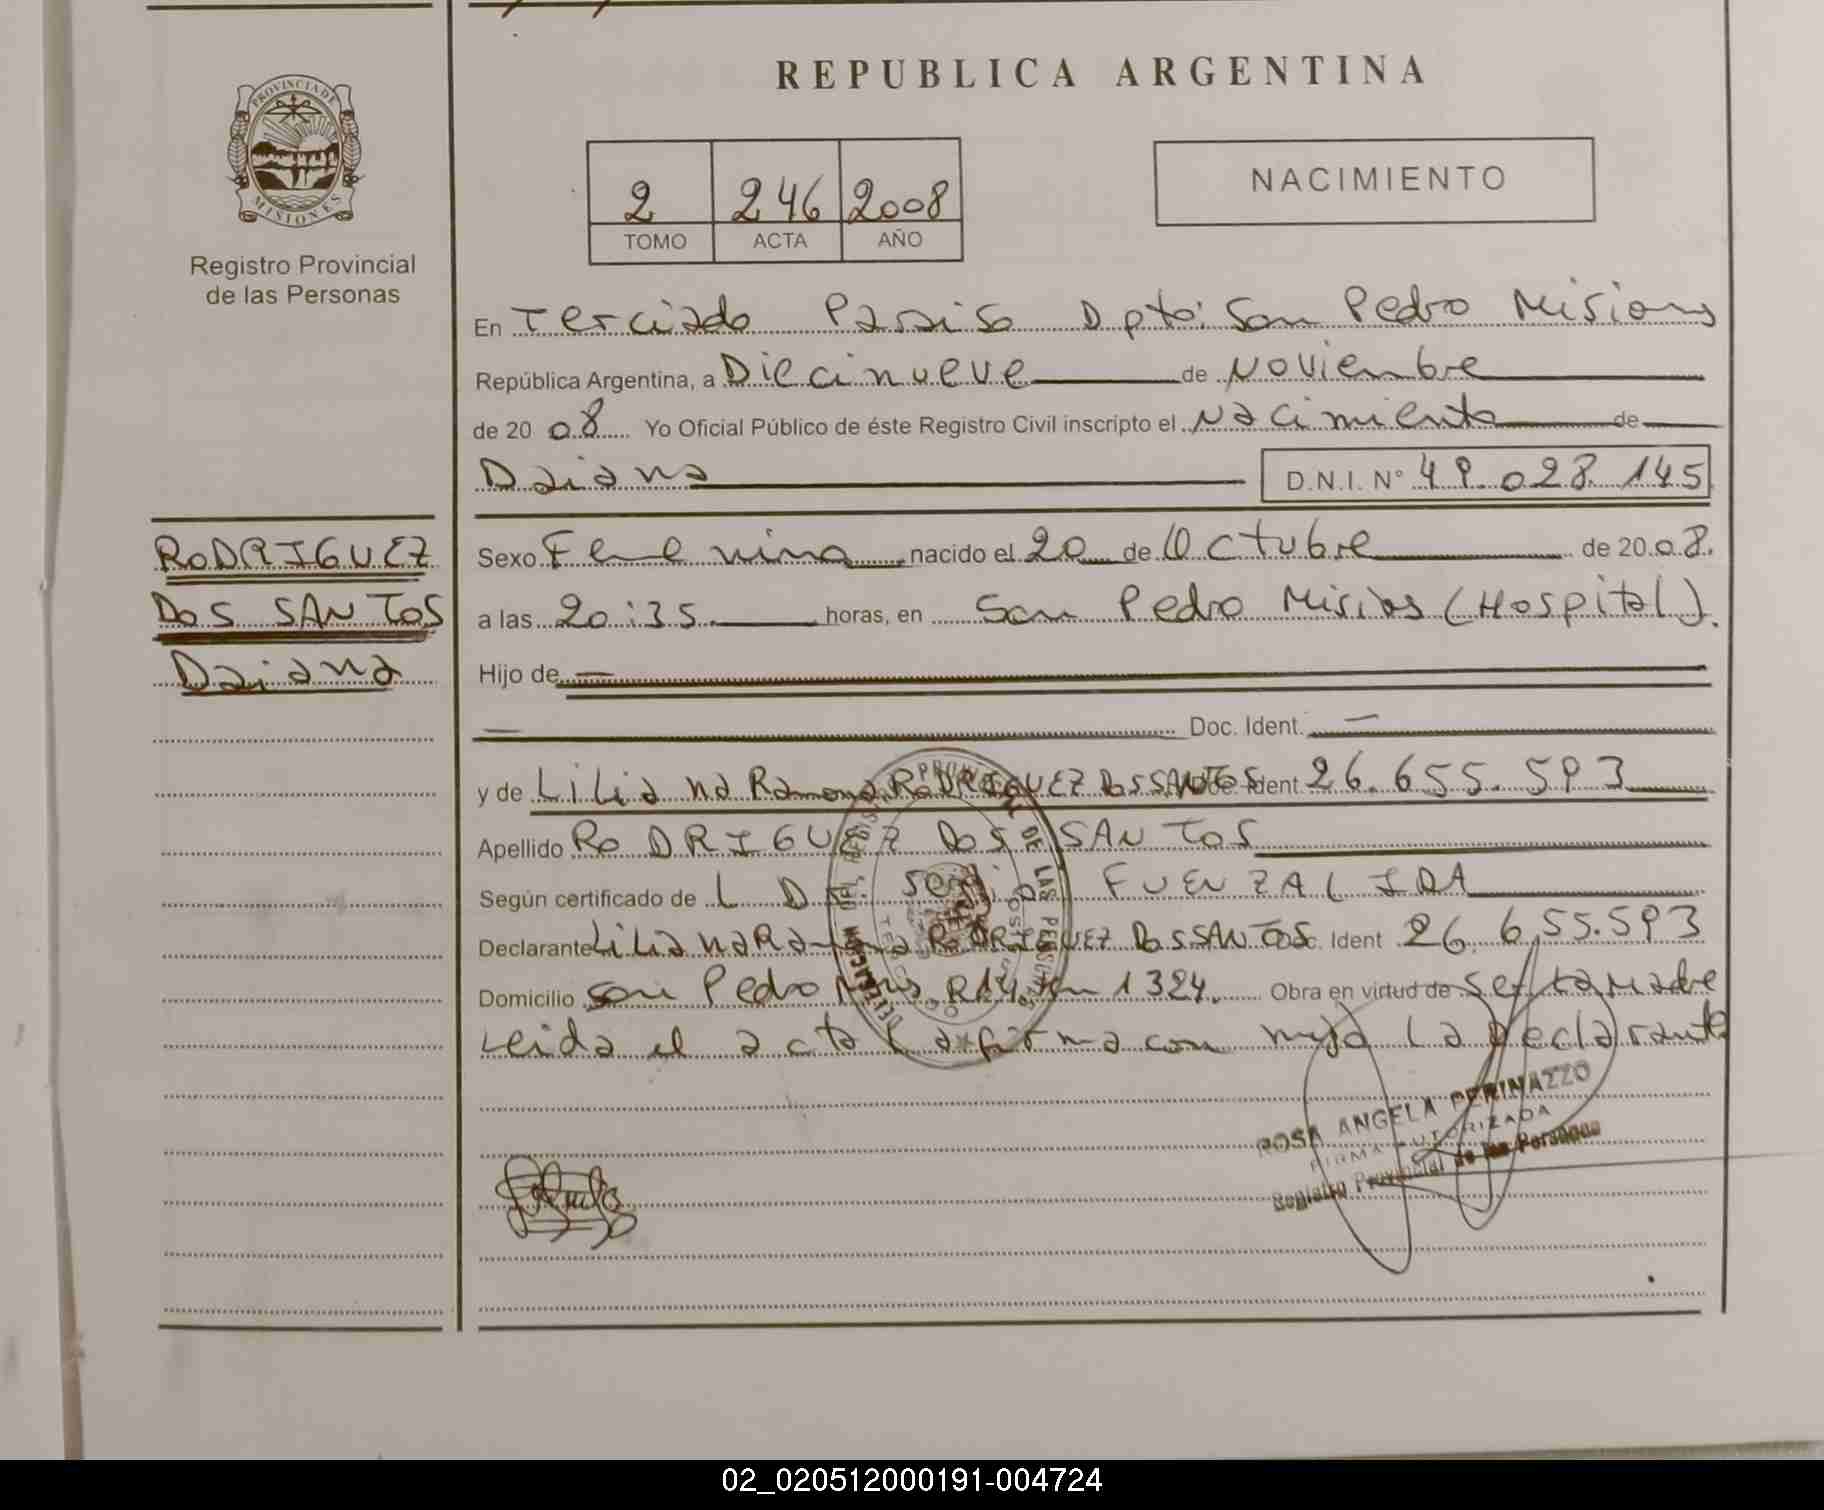 REPUBLICA ARGENTINA
PROVINCIA DE
MISIONES
Registro Provincial
de las Personas
2 246 2008
TOMO ACTA AÑO
NACIMIENTO
En Terciado Paraiso Dpto: San Pedro Misiones
República Argentina, a Diecinueve de Noviembre
de 20 08 Yo Oficial Público de éste Registro Civil inscripto el Nacimiento de
Daiana D.N.I. N° 49.028.145
RODRIGUEZ
DOS SANTOS
Daiana
Sexo Femenino nacido el 20 de Octubre de 20 08.
a las 20:35 horas, en San Pedro Misiones (Hospital).
Hijo de —
— Doc. Ident. —
y de Liliana Ramona RODRIGUEZ DOS SANTOS Doc. Ident 26.655.593
Apellido RODRIGUEZ DOS SANTOS
Según certificado de L D Sergio FUENZALIDA
Declarante Liliana Ramona RODRIGUEZ DOS SANTOS Doc. Ident 26.655.593
Domicilio San Pedro Mnes R14 Km 1324. Obra en virtud de ser la Madre
Leida el acta la firma con migo la Declarante
ROSA ANGELA PERINAZZO
FIRMA AUTORIZADA
Registro Provincial de las Personas
02_020512000191-004724